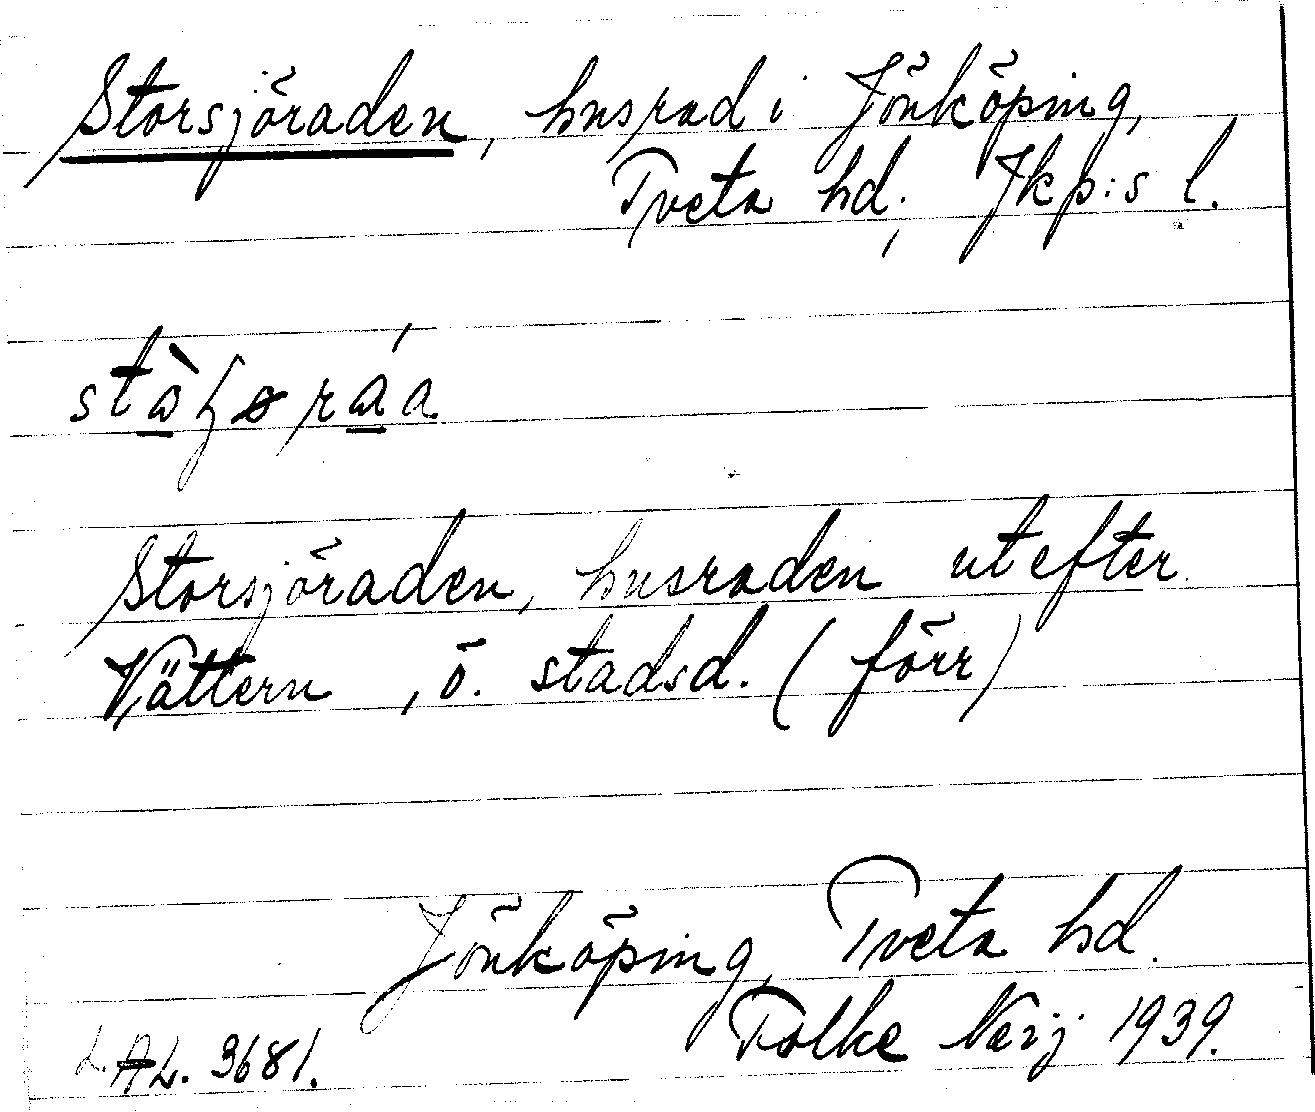 Storsjöraden, husrad i Jönköping,
Tveta hd., Jkp:s l.
Storsjöraden, husraden utefter
Vättern, ö. stadsd. (förr)
Jönköping, Tveta hd.
Folke Neij 1939.
L.AL. 3681.